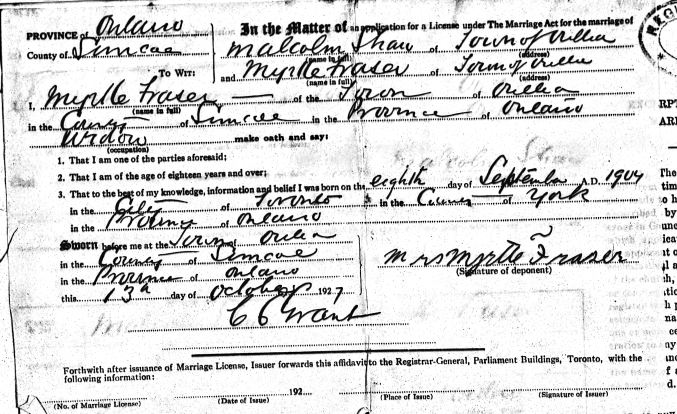 PROVINCE of Ontario
County of Simcoe
To Wit:
In the Matter of an application for a License under The Marriage Act for the marriage of
Malcolm Shaw of Town of Orillia
(name in full) (address)
and Myrtle Fraser of Town of Orillia
(name in full) (address)
I, Myrtle Fraser of the Town of Orillia
(name in full)
in the County of Simcoe in the Province of Ontario
Widow make oath and say:
(occupation)
1. That I am one of the parties aforesaid;
2. That I am of the age of eighteen years and over;
3. That to the best of my knowledge, information and belief I was born on the eighth day of September A.D. 1904
in the City of Toronto in the County of York
in the Province of Ontario
Sworn before me at the Town of Orillia
in the County of Simcoe
in the Province of Ontario
this 13th day of October 1927
Mrs Myrtle Fraser
(Signature of deponent)
Grant
Forthwith after issuance of Marriage License, Issuer forwards this affidavit to the Registrar-General, Parliament Buildings, Toronto, with the
following information:
192
(No. of Marriage License) (Date of Issue) (Place of Issue) (Signature of Issuer)